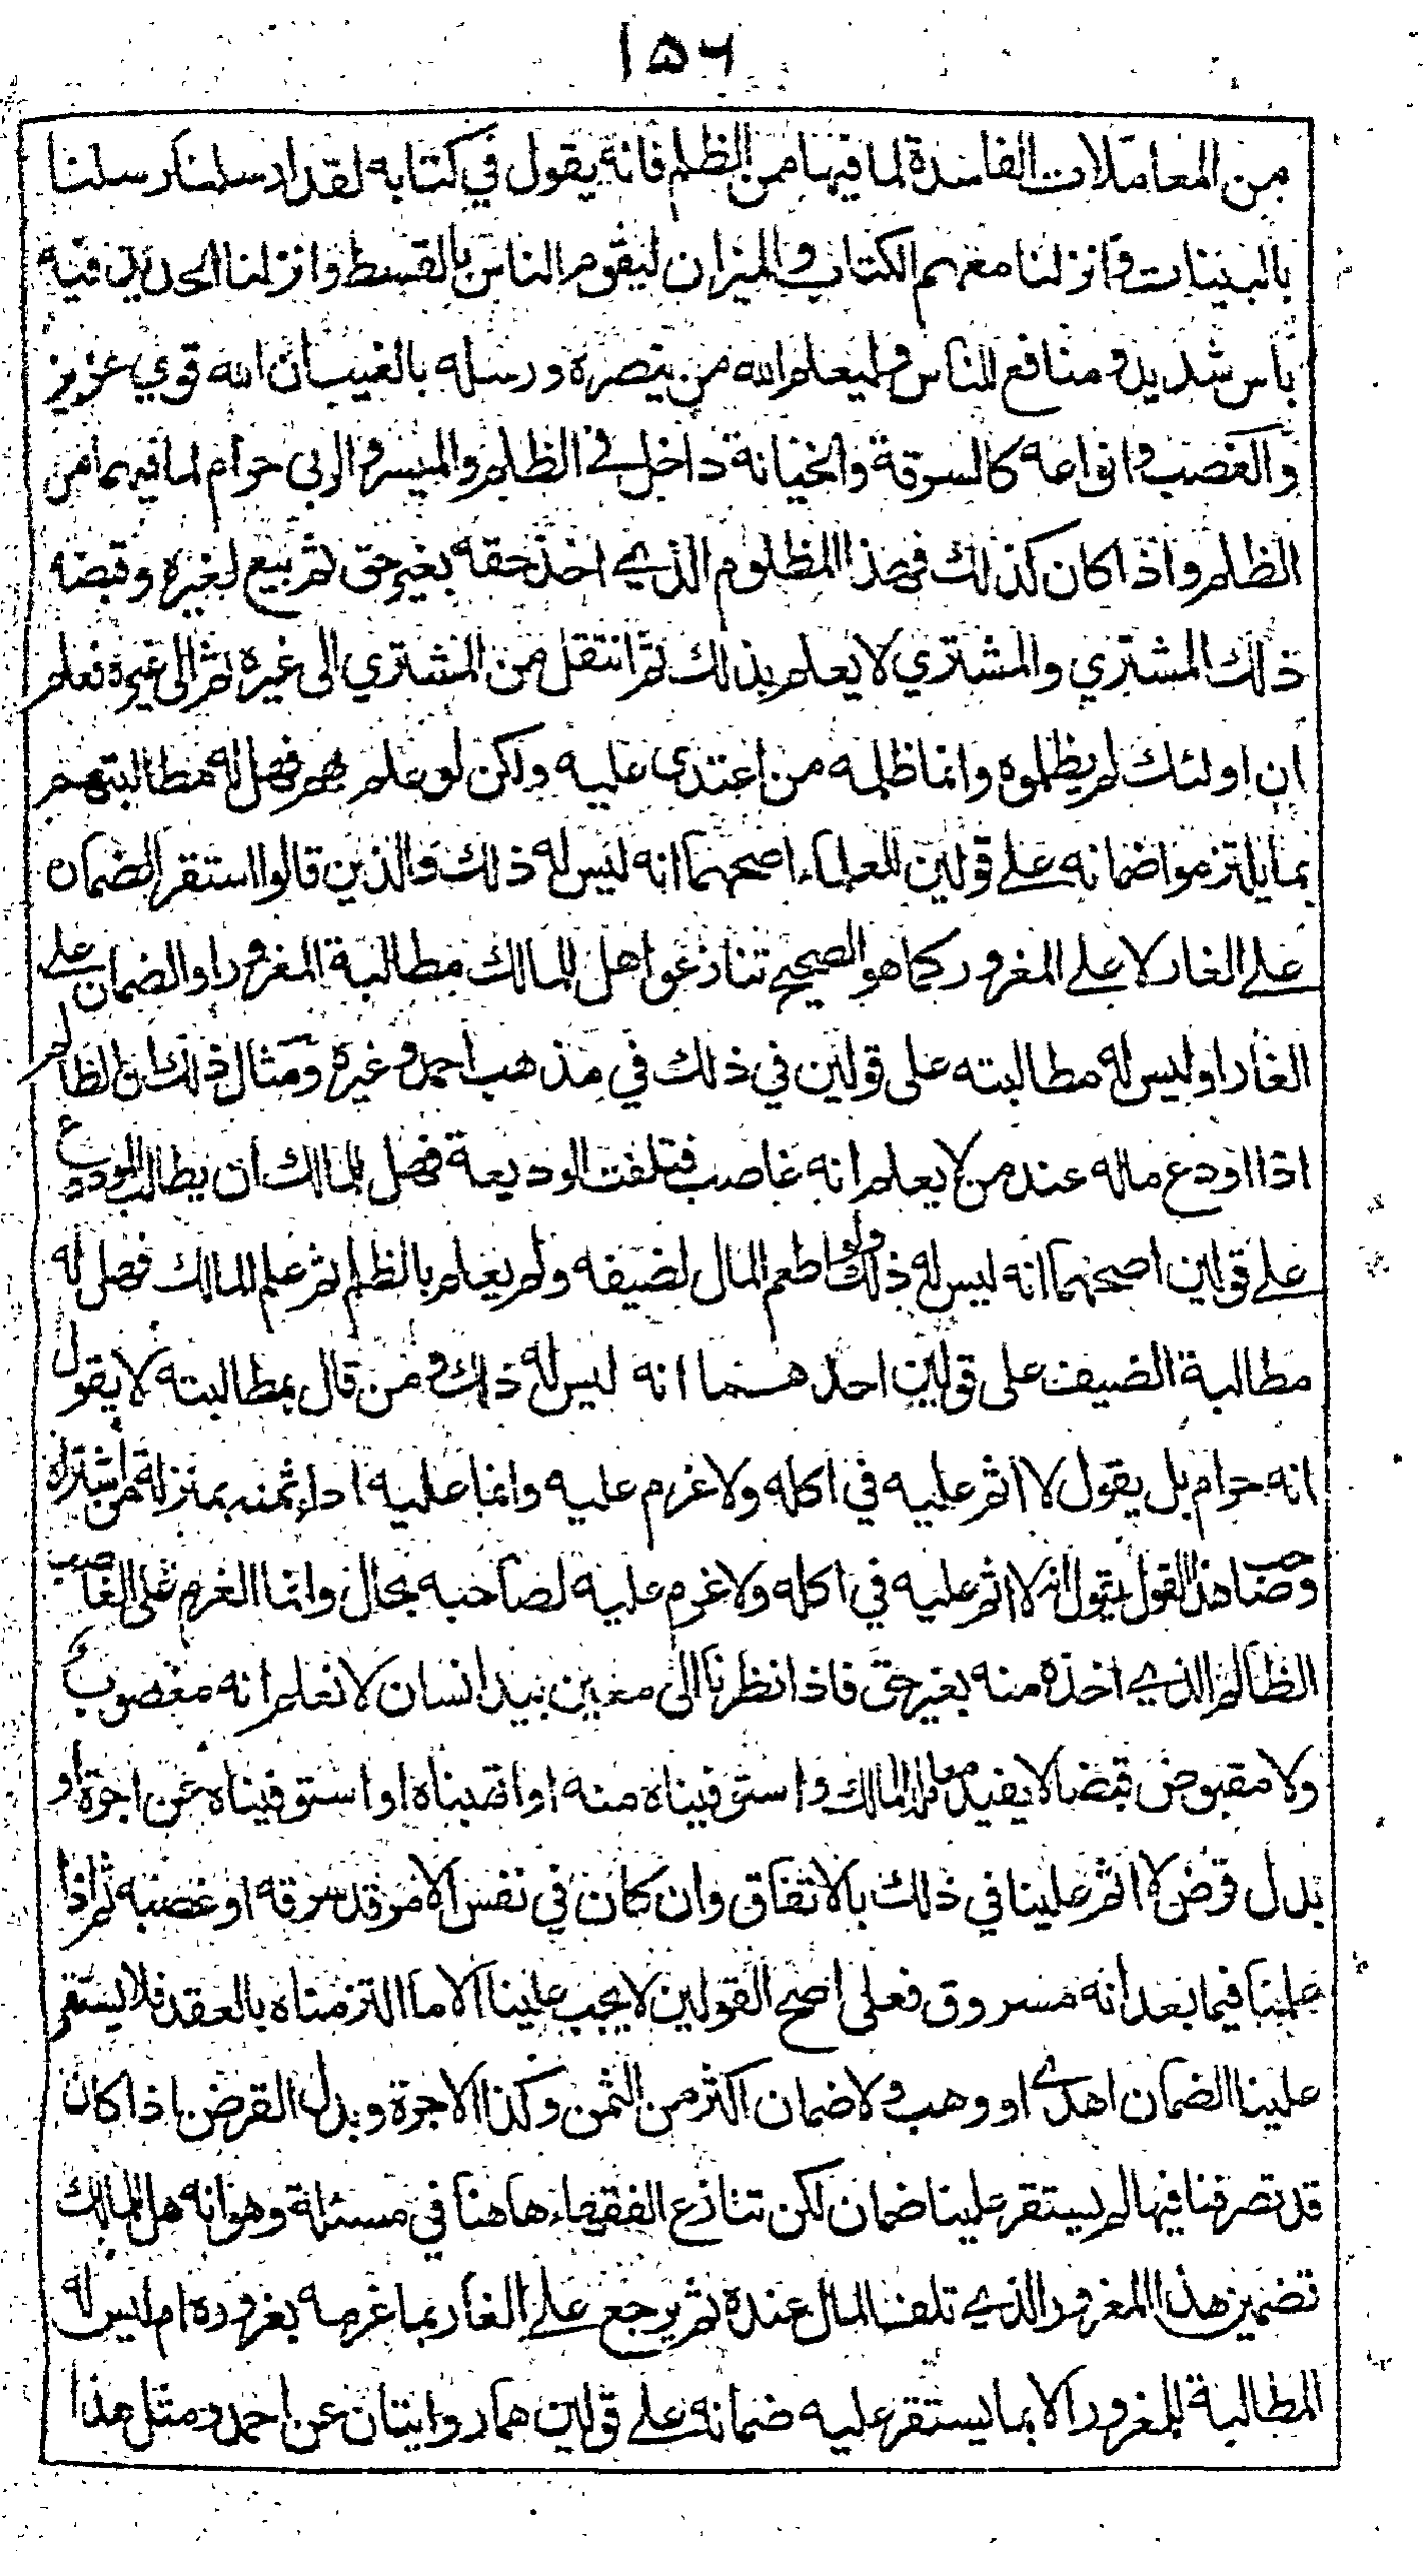 ١٥٦
من المعاملات الفاسدة لما فيها من الظلم فانه يقول في كتابه لقد ارسلنا رسلنا
بالبينات وانزلنا معهم الكتاب والميزان ليقوم الناس بالقسط وانزلنا الحديد فيه
باس شديد ومنافع للناس وليعلم الله من ينصره ورسله بالغيب ان الله قوي عزيز
والغصب وانواعه كالسرقة والخيانة داخل في الظلم والميسر والربى حرام لما فيهما من
الظلم واذا كان كذلك فهذا المظلوم الذي اخذ حقه بغير حق ثم بيع لغيره وقبضه
ذلك المشتري والمشتري لا يعلم بذلك ثم انتقل من المشتري الى غيره ثم الى غيره فعلم
ان اولئك لم يظلموه وانما ظلمه من اعتدى عليه ولكن لو علم بهم فهل له مطالبتهم
بما يلتزموا ضمانه على قولين للعلماء اصحهما انه ليس له ذلك والذين قالوا استقر الضمان
على الغار لا على المغرور كما هو الصحيح تنازعوا هل للمالك مطالبة المغرور او الضمان على
الغار او ليس له مطالبته على قولين في ذلك في مذهب احمد وغيره ومثال ذلك ان الظالم
اذا اودع ماله عند من لا يعلم انه غاصب فتلفت الوديعة فهل للمالك ان يطالب المودع
على قولين اصحهما انه ليس له ذلك ولو اطعم المال لضيفه ولم يعلم بالظلم ثم علم المالك فهل له
مطالبة الضيف على قولين احدهما انه ليس له ذلك ومن قال بمطالبته لا يقول
انه حرام بل يقول لا اثم عليه في اكله ولا غرم عليه وانما عليه اداء ثمنه بمنزلة من اشتراه
وصاحب هذا القول يقول انه لا اثم عليه في اكله ولا غرم عليه لصاحبه بحال وانما الغرم على الغاصب
الظالم الذي اخذه منه بغير حق فاذا نظرنا الى معين بيد انسان لا نعلم انه مغصوب
ولا مقبوض قبضا لا يفيد المالك واستوفيناه منه او اتهبناه او استوفيناه عن اجرة او
بدل قرض لا اثم علينا في ذلك بالاتفاق وان كان في نفس الامر قد سرقه او غصبه ثم اذا
علمنا فيما بعد انه مسروق فعلى اصح القولين لا يجب علينا الا ما التزمناه بالعقد فلا يستقر
علينا الضمان اهدى او وهب ولا ضمان اكثر من الثمن وكذا الاجرة وبدل القرض اذا كان
قد تصرفنا فيها لم يستقر علينا ضمان لكن تنازع الفقهاء هاهنا في مسئلة وهو انه هل للمالك
تضمين هذا المغرور الذي تلف المال عنده ثم يرجع على الغار بما غرمه بغروره ام ليس له
المطالبة للمغرور الا بما يستقر عليه ضمانه على قولين هما روايتان عن احمد ومثل هذا